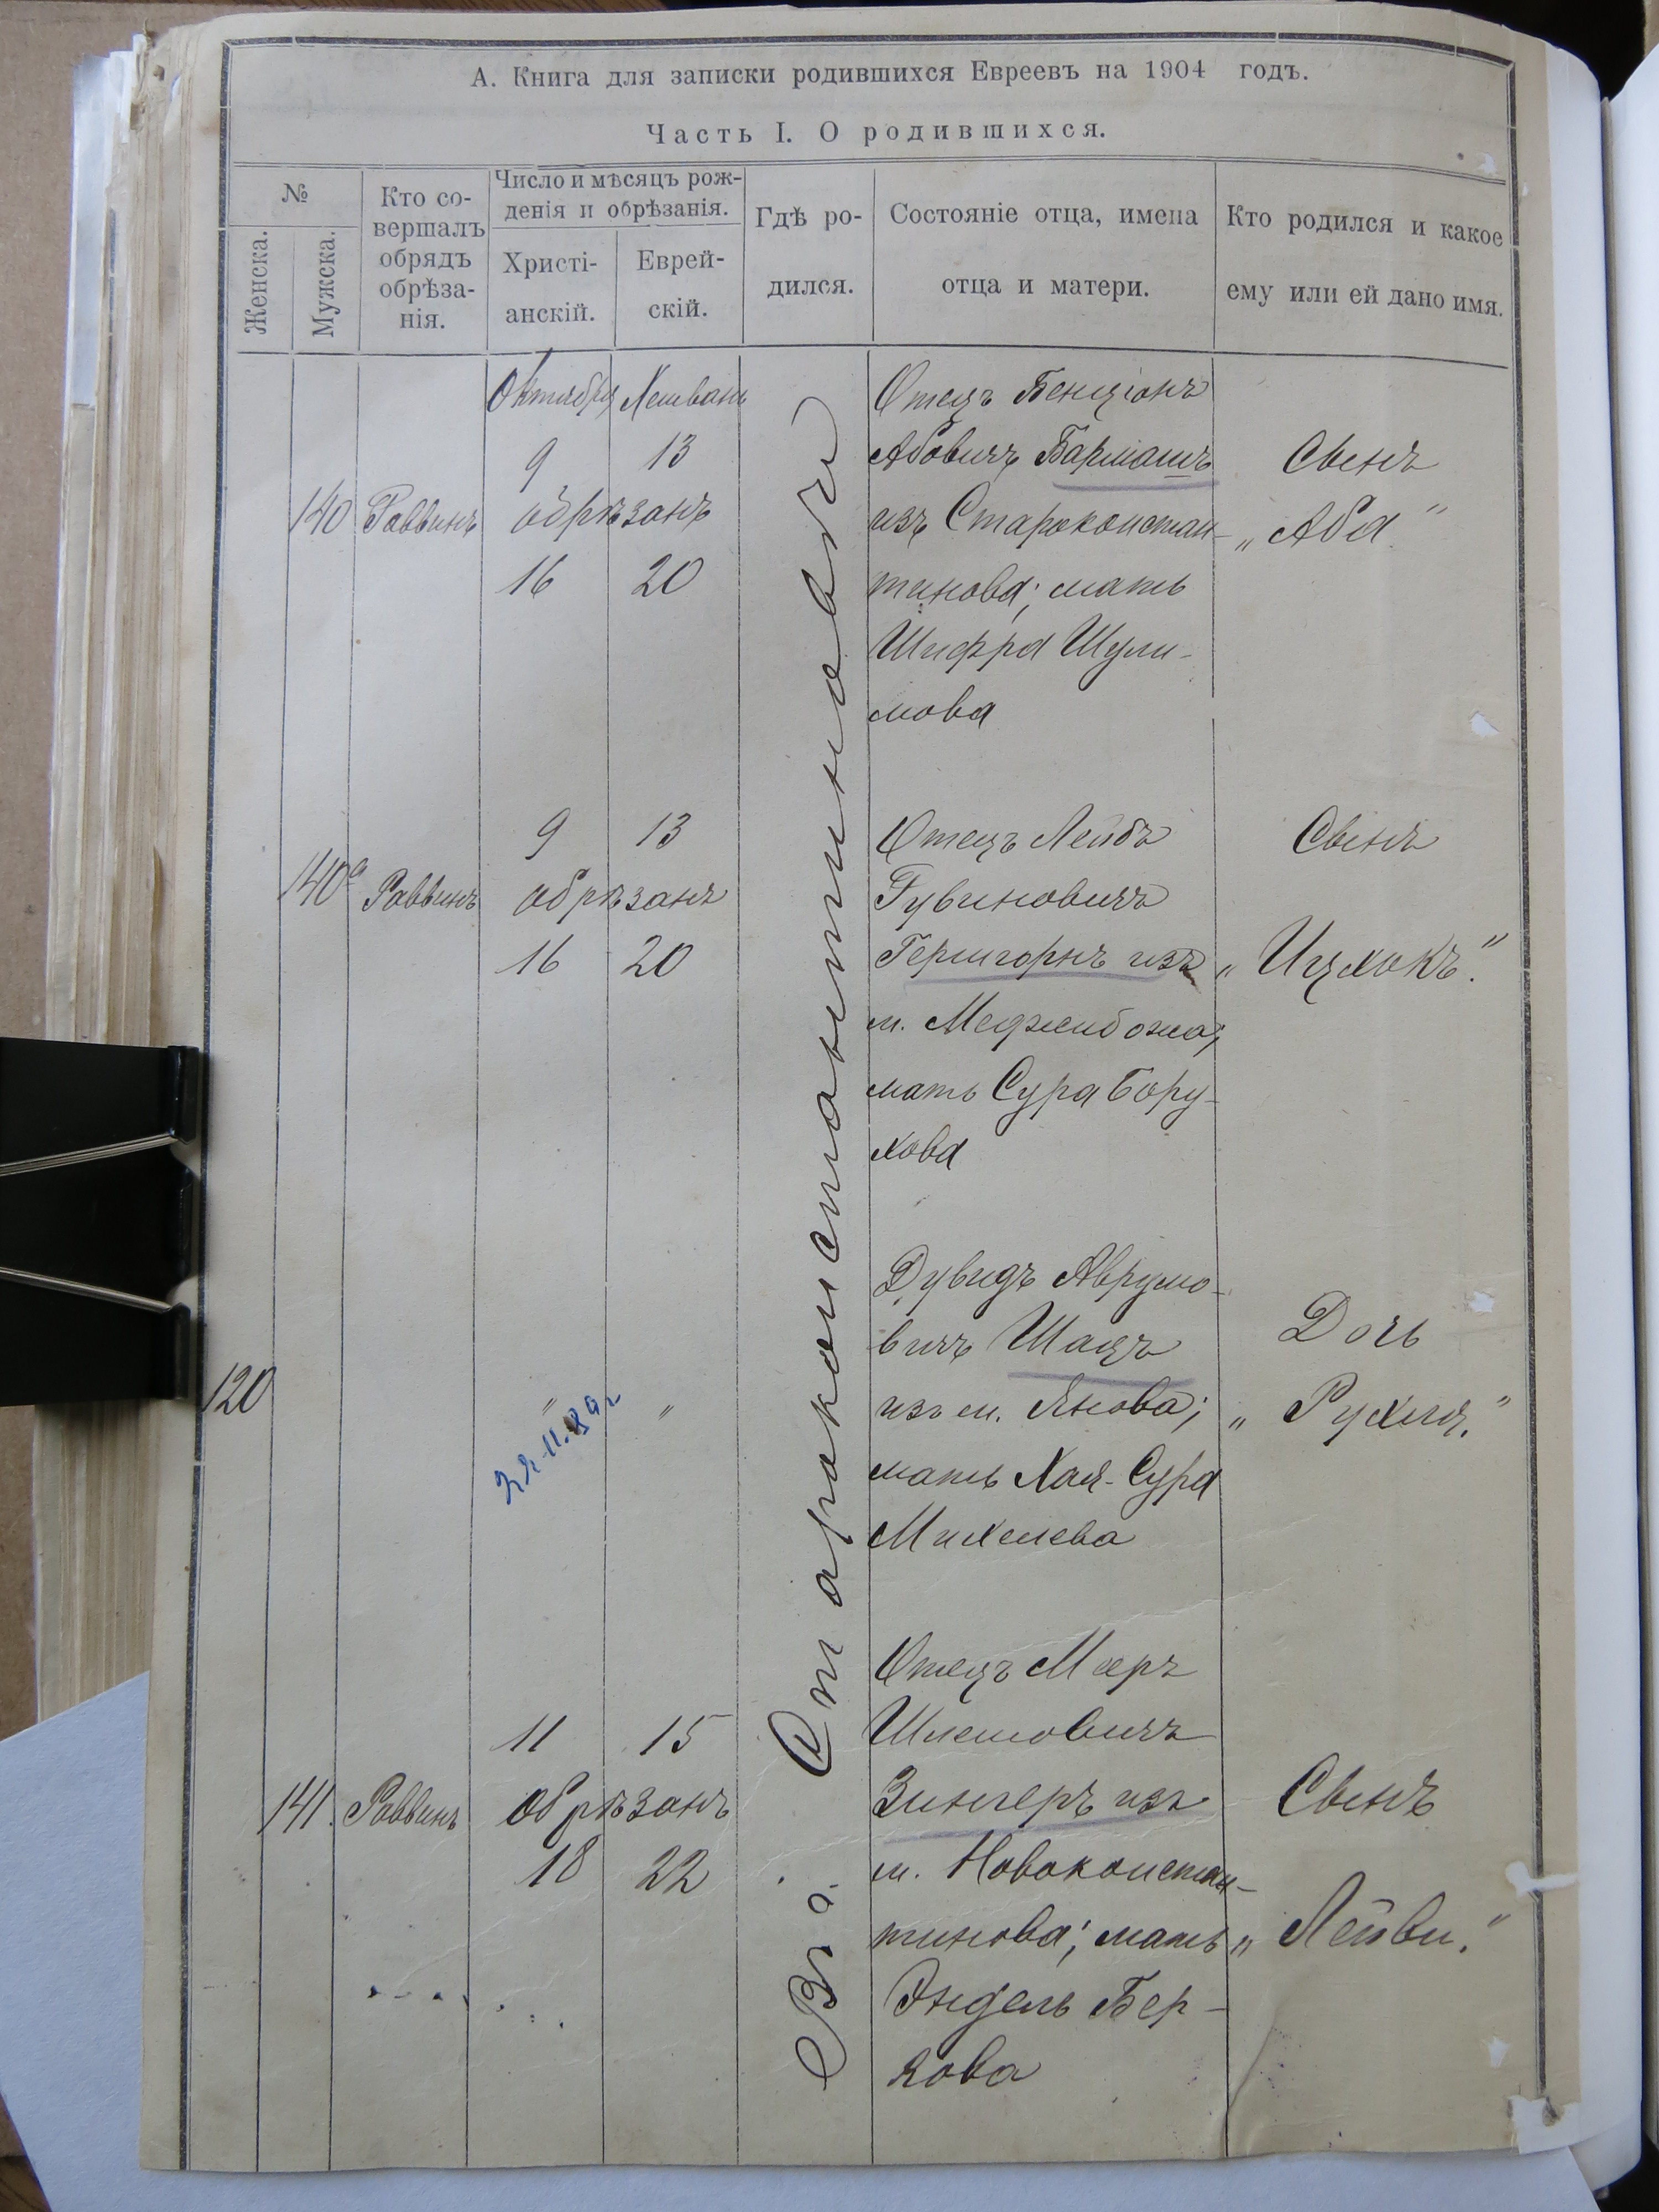 А. Книга для записки родившихся Евреевъ на 1904 годъ.
Часть I. О родившихся.
№
Женска.
Мужска.
Кто со-
вершалъ
обрядъ
обрѣза-
нія.
Число и мѣсяцъ рож-
денія и обрѣзанія.
Христі-
анскій.
Еврей-
скій.
Гдѣ ро-
дился.
Состояніе отца, имена
отца и матери.
Кто родился и какое
ему или ей дано имя.
Въ г. Староконстантиновѣ
Октября Хешванъ
9 13
140 Раввинъ обрѣзанъ
16 20
Отецъ Бенціонъ
Абовичъ Бармашъ
изъ Староконстан-
тинова; мать
Шифра Шули-
мова
Сынъ
„Аба"
9 13
140а Раввинъ обрѣзанъ
16 20
Отецъ Лейбъ
Рувиновичъ
Гершгорнъ изъ
м. Меджибожа;
мать Сура Бору-
хова
Сынъ
„Ицхокъ".
120
" "
Дувидъ Аврумо-
вичъ Шацъ
изъ м. Янова;
мать Хая-Сура
Михелева
Дочь
„Рухля."
11 15
141. Раввинъ обрѣзанъ
18 22
Отецъ Мееръ
Шлемовичъ
Зингеръ изъ
м. Новоконстан-
тинова; мать
Эндель Бер-
кова
Сынъ
„Лейви."